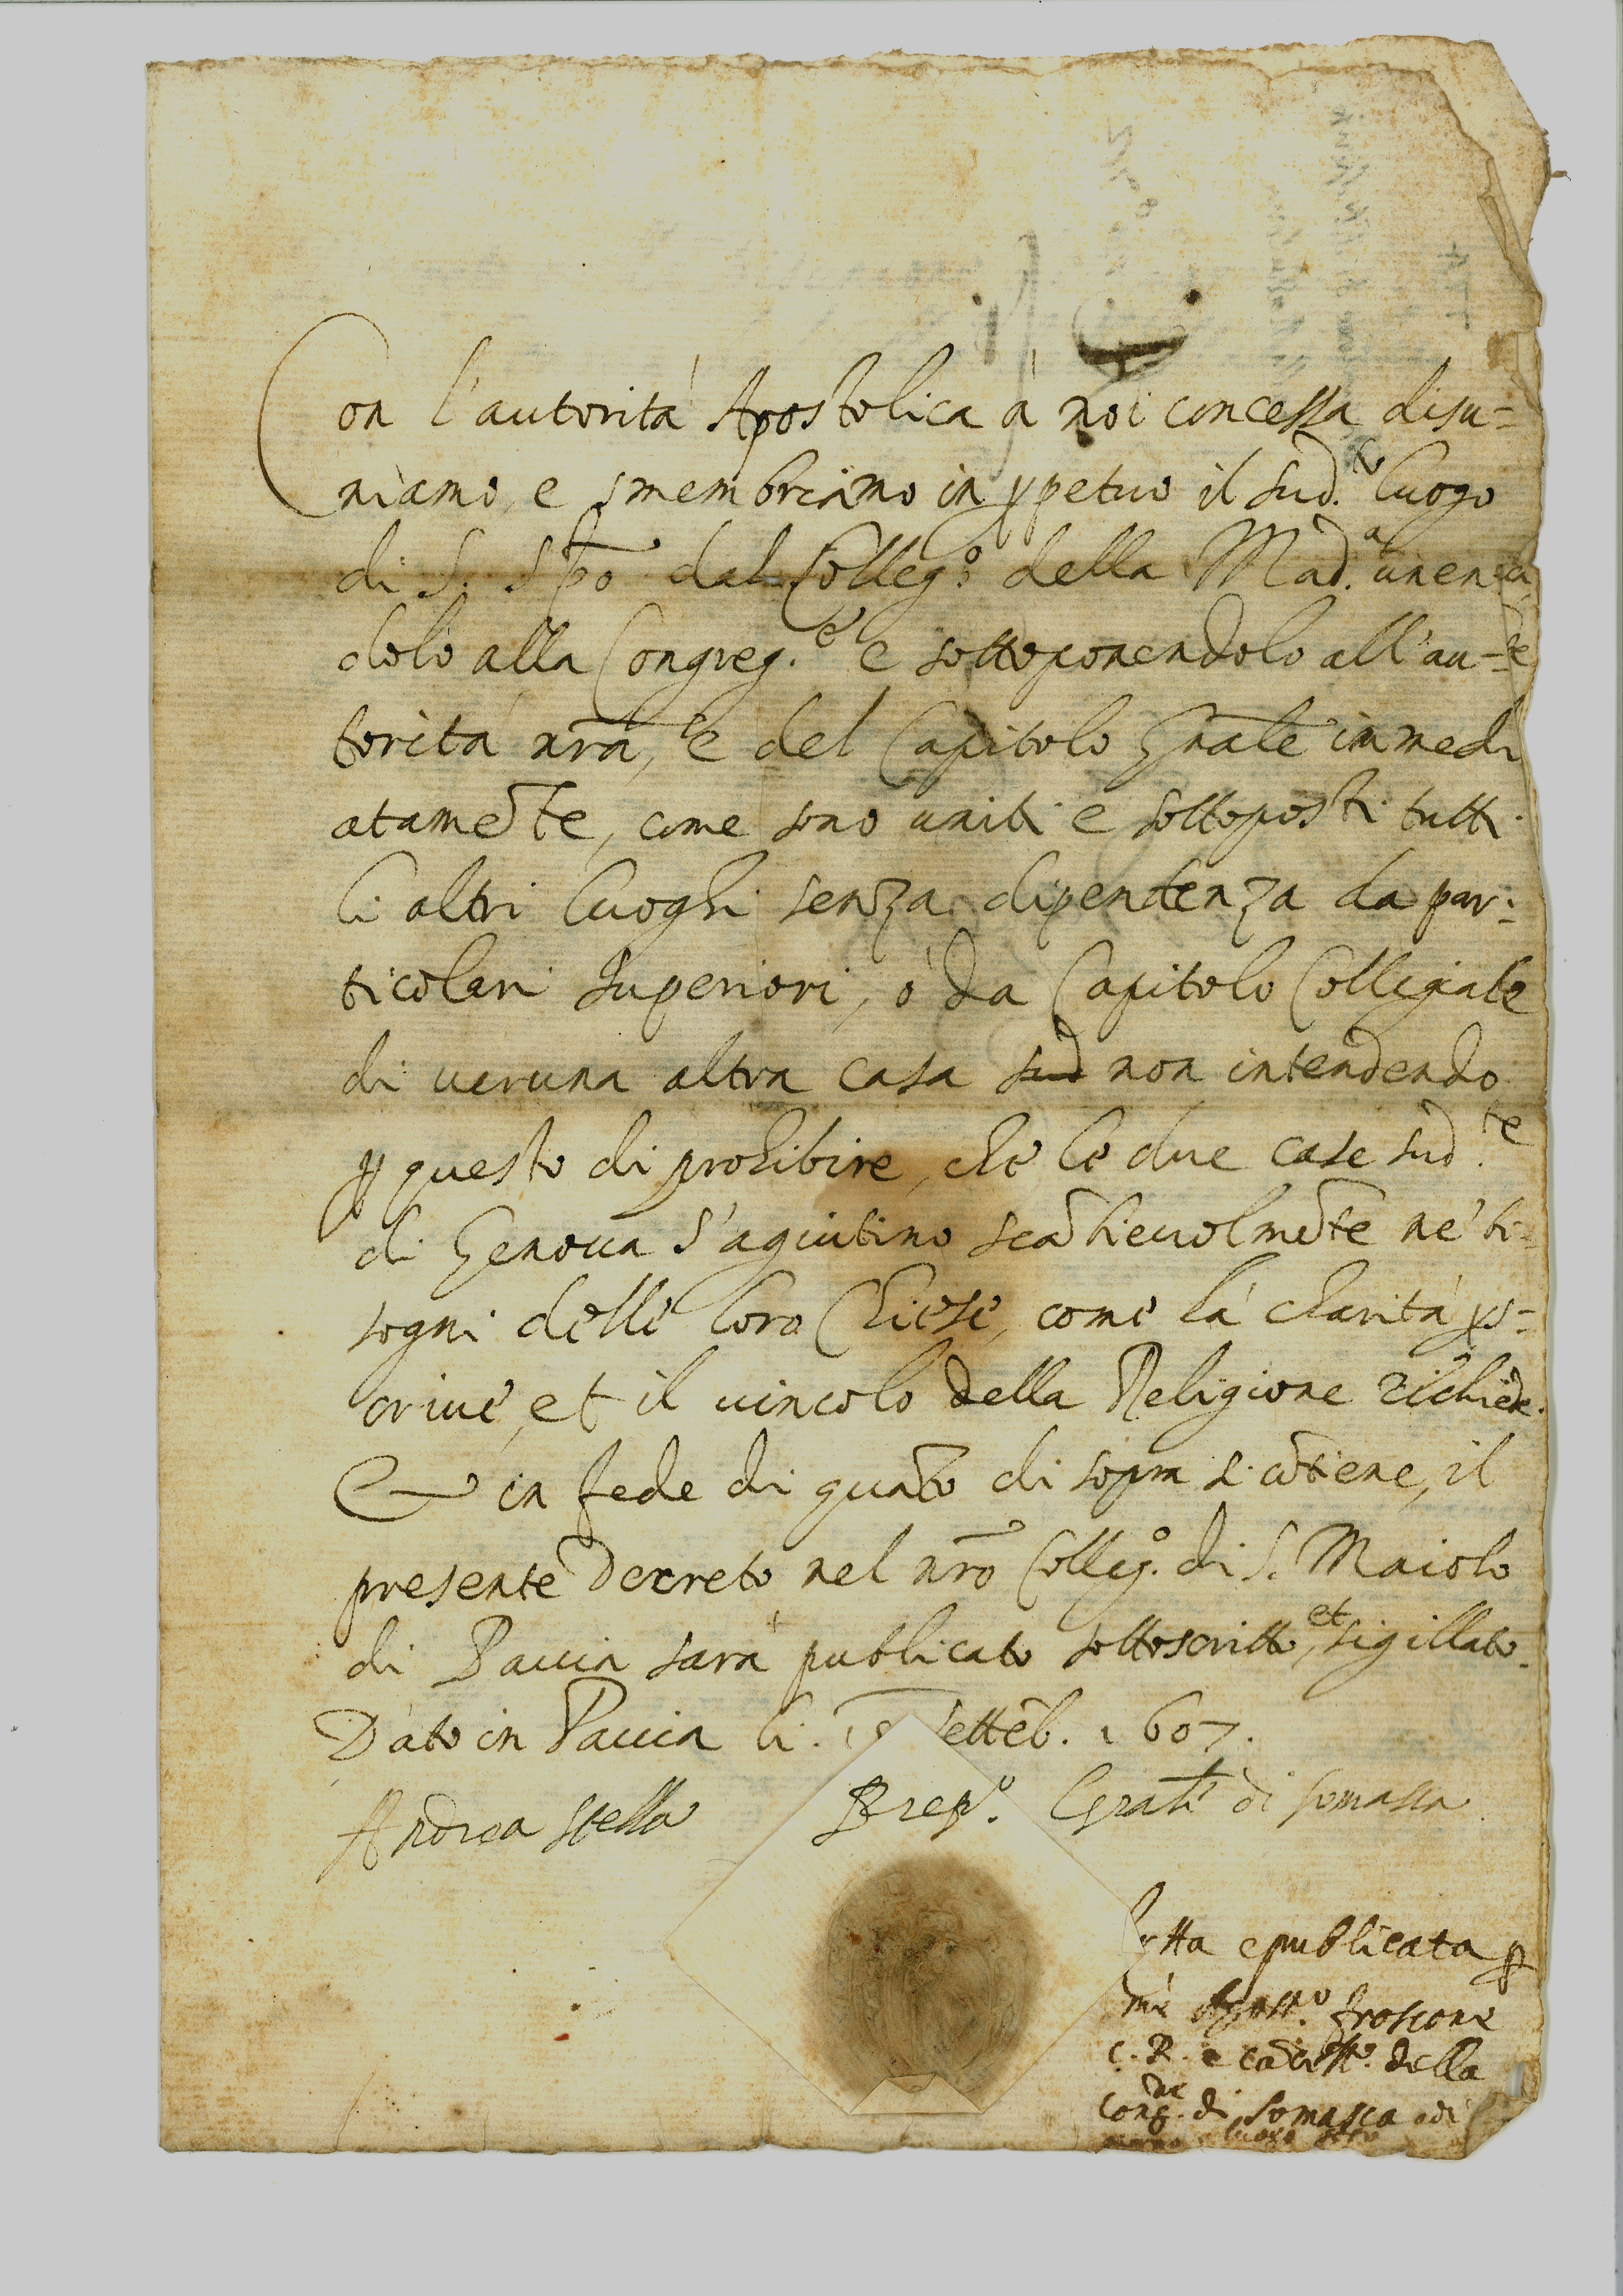 Con l'autorità Apostolica à noi concessa disu=
niamo, e smembriamo in ꝑpetuo il sud.to luogo
di S. Spō dal Colleg.o della Mad.a unen
dolo alla Congreg.e e sottoponendolo all'au-
torità nrā, e del Capitolo Gnāle immedi
atamēte, come sono uniti e sottoposti tutti
li altri luoghi senza dipendenza da par:
ticolari superiori, ò da Capitolo Collegiale
di veruna altra casa sud non intendendo
ꝑ questo di prohibire, che le due case sud.te
di Genova s'agiutino scābievolmēte ne' bi-
sogni delle loro Chiese, come la charità ꝑs-
crive, et il vincolo della Religione richiede.
Et in fede di quāto di sopra si cōtiene, il
presente Decreto nel nrō Colleg.o di S. Maiolo
di Pavia sarà publicato sottoscritto, et sigillato.
Dato in Pavia li. Settēb. 1607.
Andrea Stella Prep.o Gnāle di Somasca
Letta e publicata ꝑ
me Agost.o froscone
C. R. e cācell.o della
Cong.ne di Somasca adi
luogo